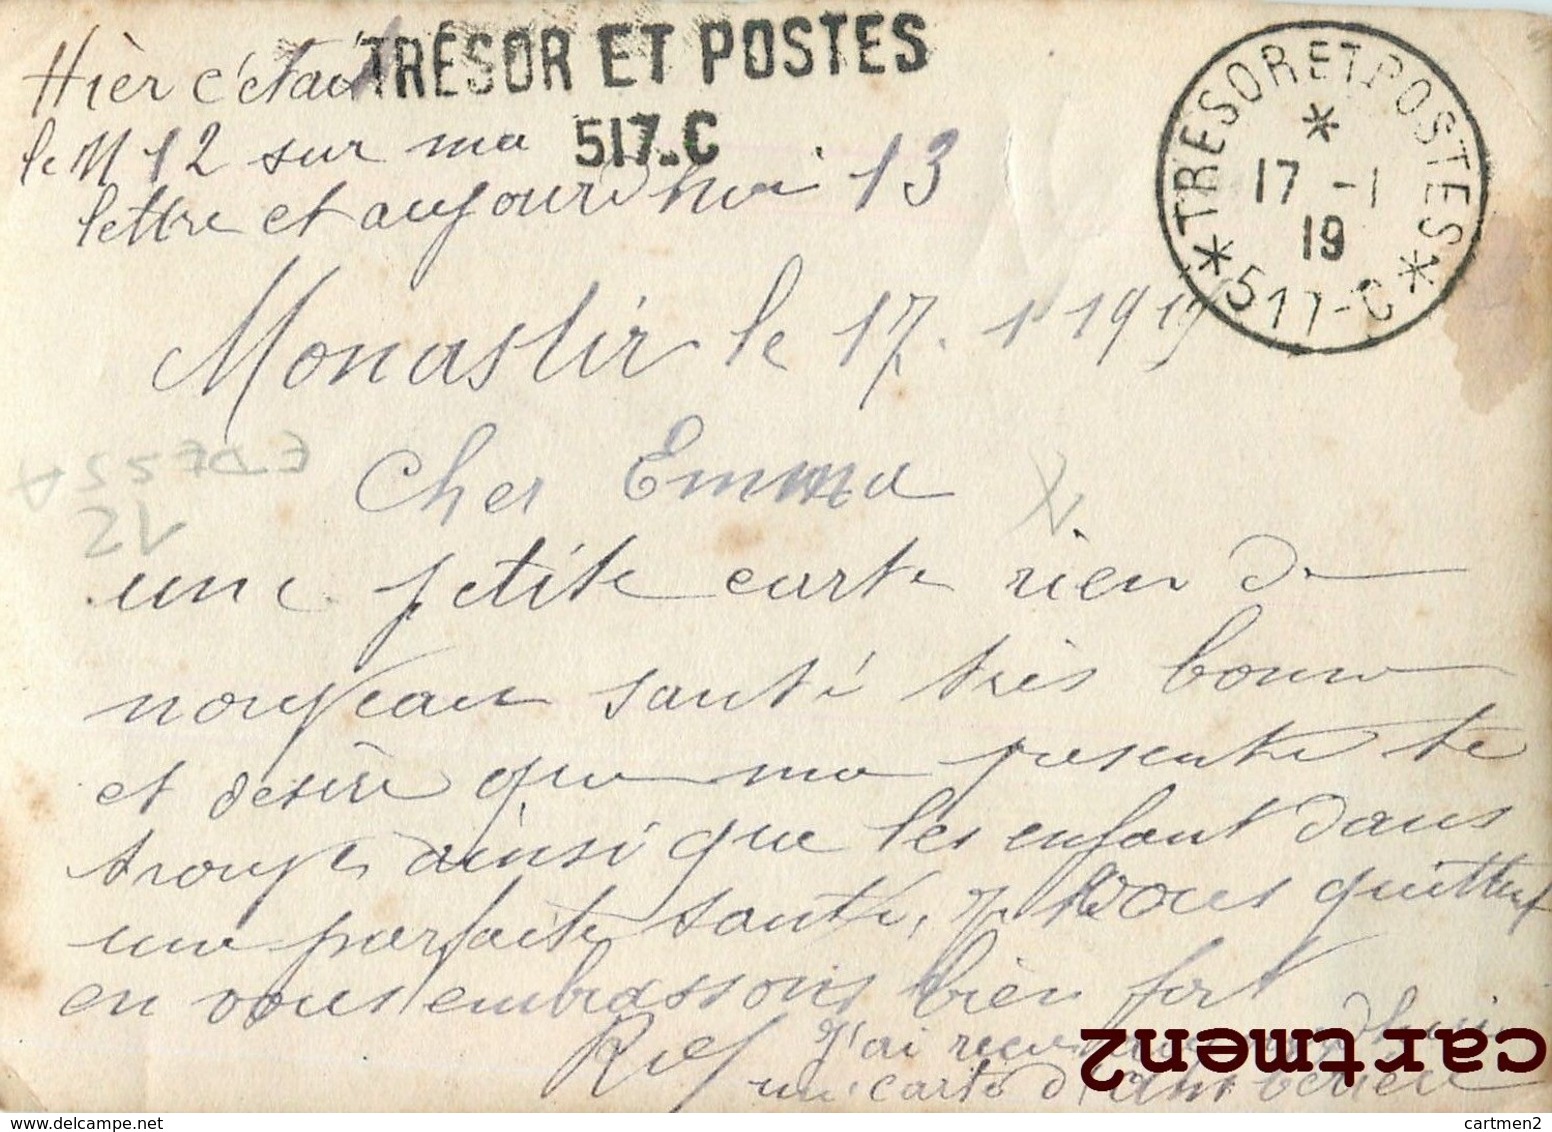 Hièr c'étai TRÉSOR ET POSTES
le N 12 sur ma 517-C
lettre et aujourd'hui 13
TRESOR ET POSTES
17 -1
19
517-C
Monastir le 17. 1 1919
EDESSA
VS
Cher Emma
une petite carte rien de
nouveau santé très bonne
et désire que ma présente te
trouve ainsi que les enfant dans
une parfaite santé, je vous quitte
en vous embrassons bien fort
J'ai reçu
une carte d'Ambérieu
cartmen2
delcampe.net
cartmen2